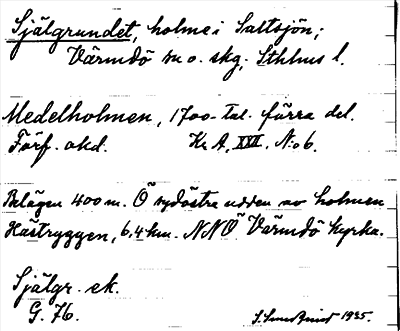 Själgrundet, holme i Saltsjön;
Värmdö sn o. skg, Sthlms l.
Medelholmen, 1700-tal. förra del.
Förf. okd. Kr A, XXI, N:o 6.
Belägen 400 m. Ö sydöstra udden av holmen
Hästryggen, 6,4 km. NNÖ Värmdö kyrka.
Själgr. ek.
G. 76.
1935.